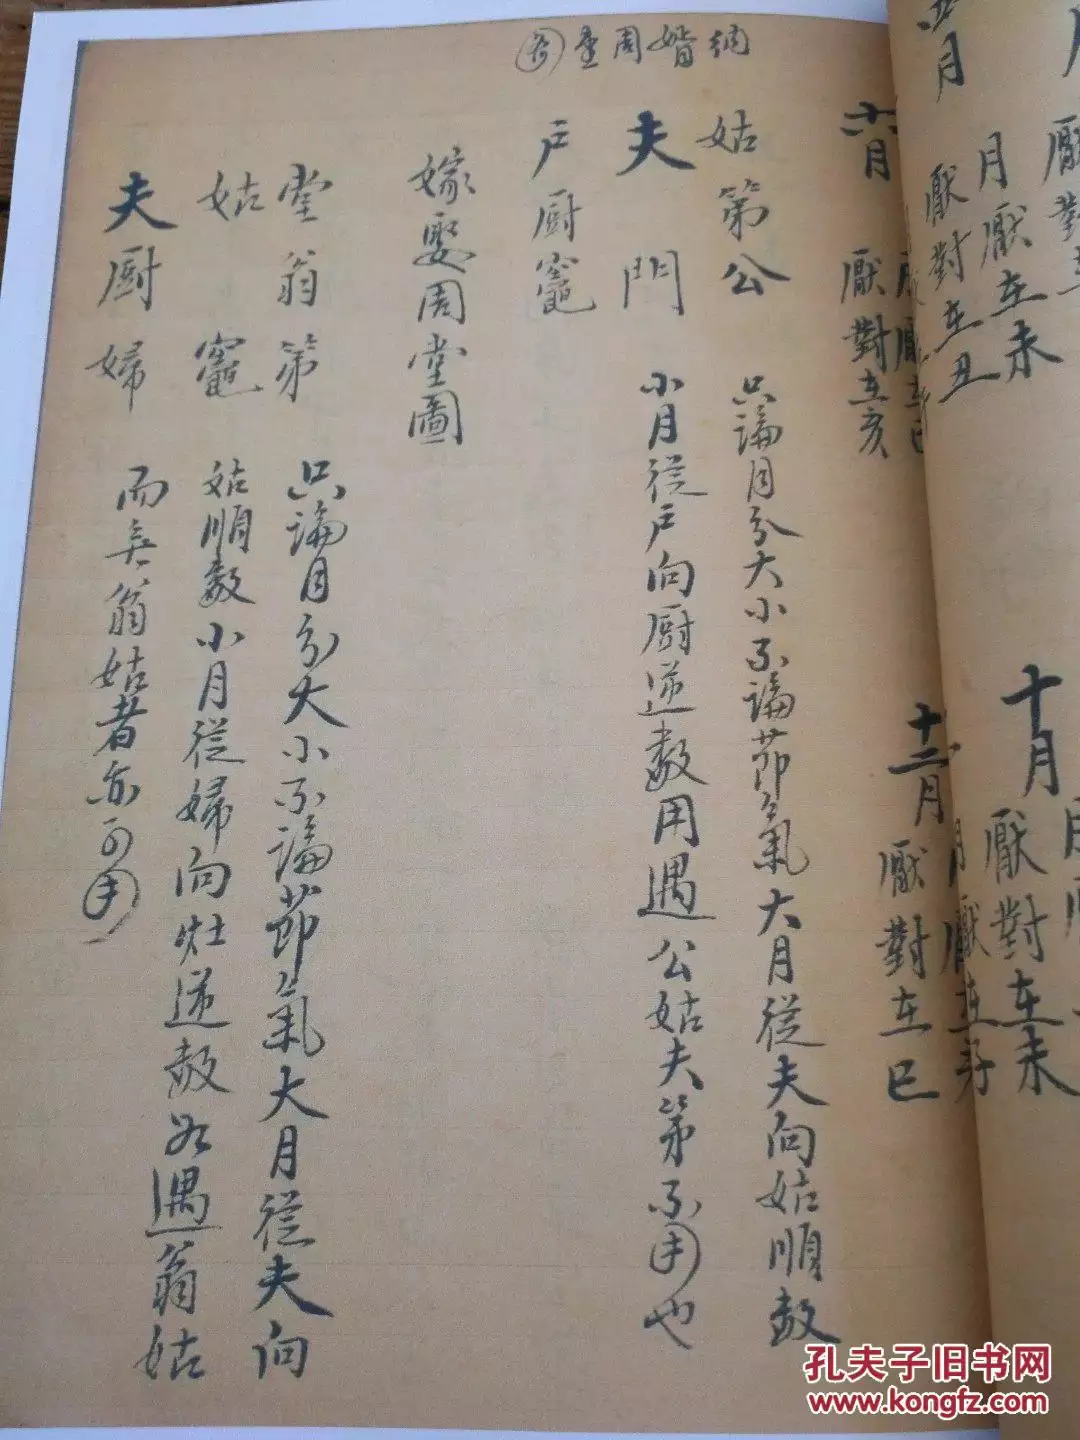 十月
厭對在未
月厭在未
厭對在丑
十二月
厭對在巳
六月
厭對在亥
納婚周堂
姑第公
夫門
戶厨竈
只論月分大小不論節氣大月從夫向姑順數
小月從戶向厨逆數用遇公姑夫第不用也
嫁娶周堂圖
堂翁第
姑竈
夫厨婦
只論月分大小不論節氣大月從夫向
姑順數小月從婦向灶逆數如遇翁姑
而無翁姑者亦可用
孔夫子旧书网
www.kongfz.com